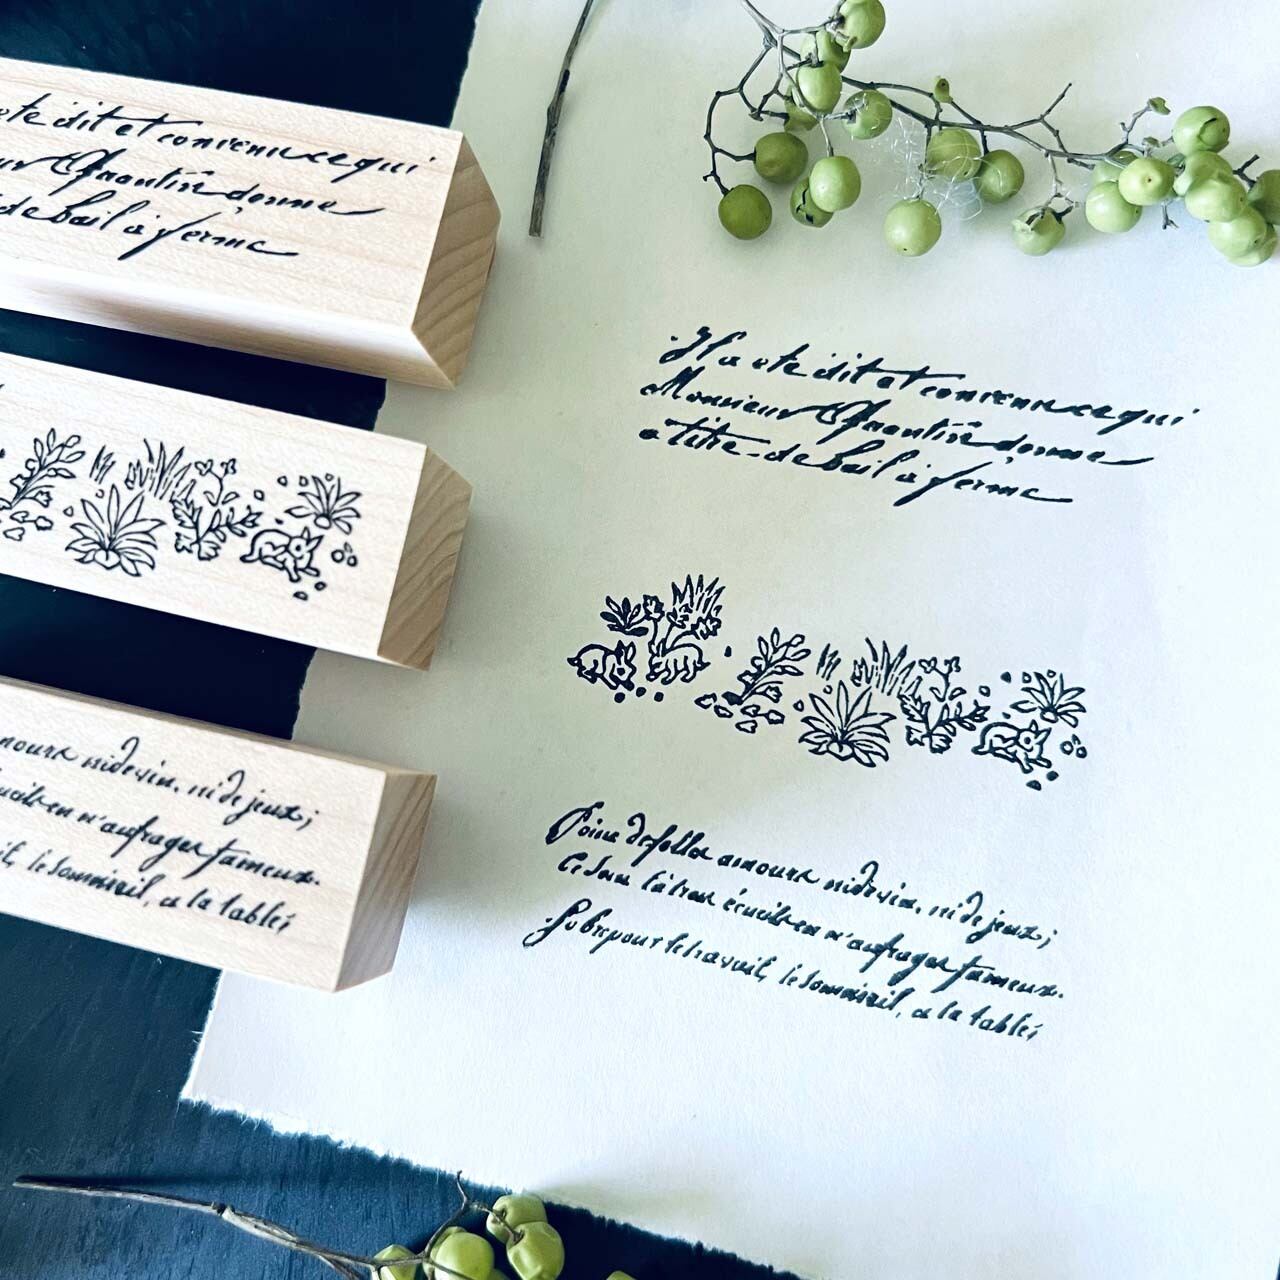 ete dit et convenu ce qui
ur Quantin donne
de bail à ferme
amours ni de vin, ni de jeux;
écueils en n'aufrages fameux.
il, le sommeil, a la table;
Il a ete dit et convenu ce qui
Monsieur Quantin donne
a titre de bail à ferme
Point de folles amours ni de vin, ni de jeux;
Ce sont là trois écueils en n'aufrages fameux.
Sobre pour le travail, le sommeil, a la table;